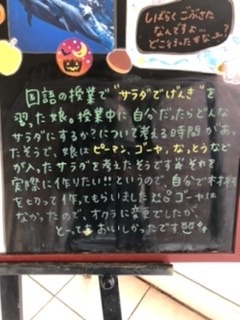 しばらくごぶさた
なんですよ…
どこ行ったかな～？
国語の授業で"サラダでげんき"を
習った娘。授業中に自分だったらどんな
サラダにするか？について考える時間があっ
たそうで、娘はピーマン、ゴーヤ、なっとうなど
が入ったサラダを考えたそうです それを
実際に作りたい!!というので、自分で材料
を切って作ってもらいました ゴーヤは
なかったので、オクラに変更でしたが、
とってもおいしかったです